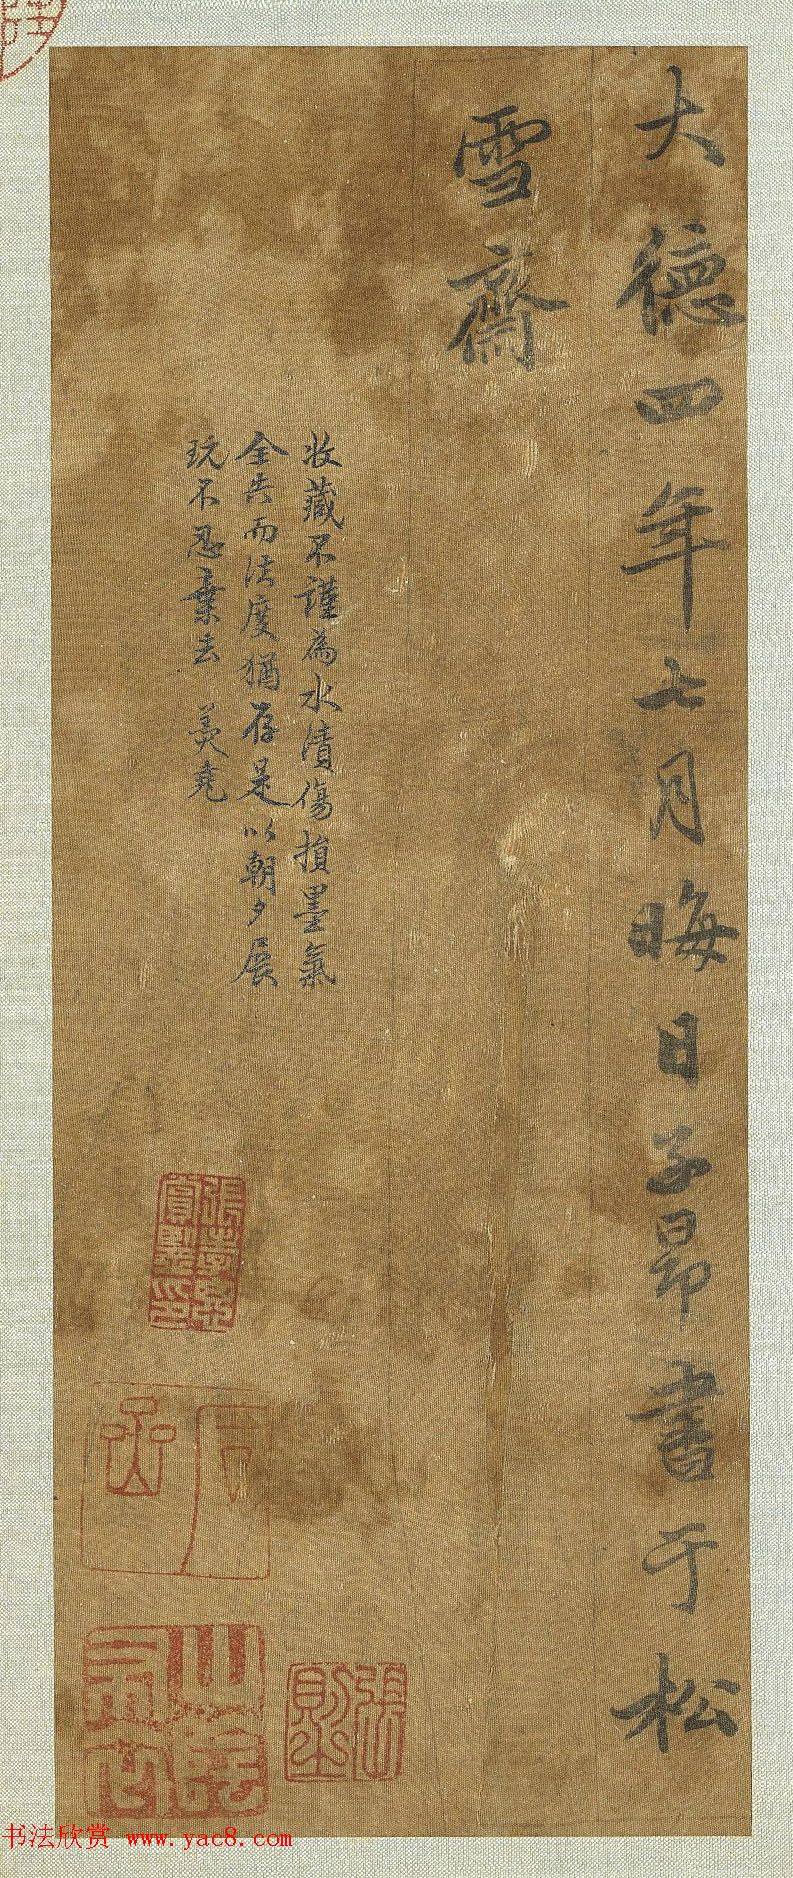 大德四年七月晦日子昂書于松
雪齋
收藏不謹為水漬傷損墨氣
全失而法度猶存是以朝夕展
玩不忍棄去 羨堯
书法欣赏 www.yac8.com